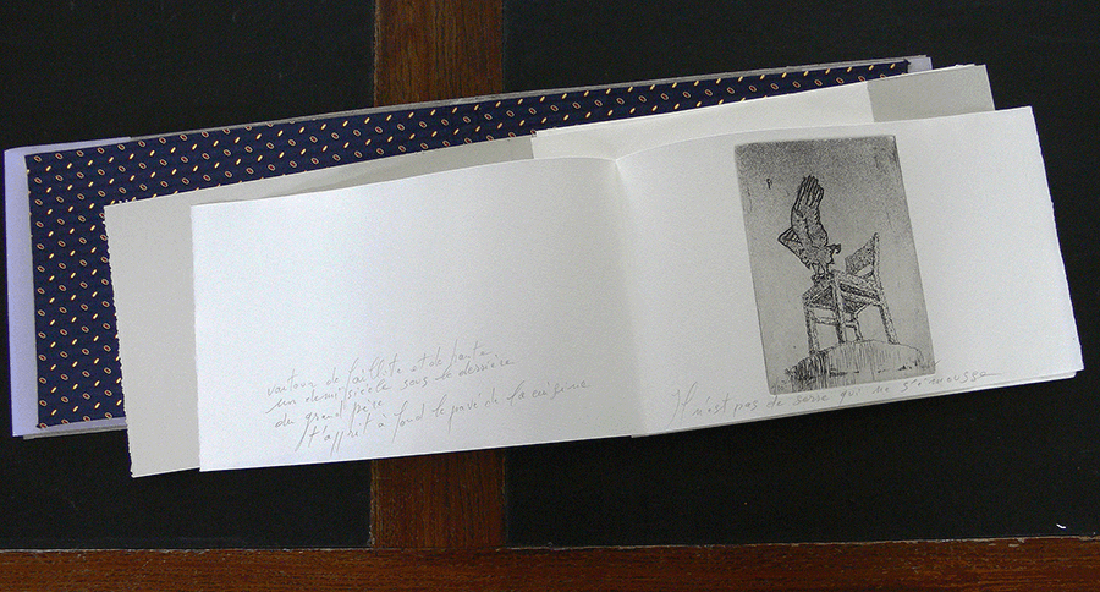 vautour de faillite et de honte
un demi siècle sous le derrière
du grand père
t'apprit à fond le pavé de la cuisine
Il n'est pas de serre qui ne s'émousse